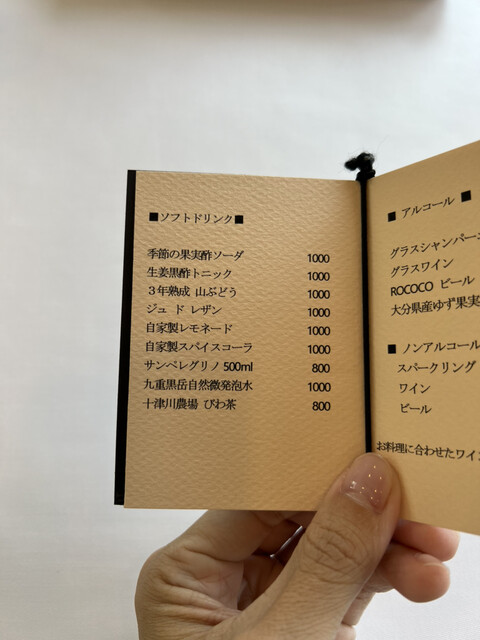 ■ソフトドリンク■
季節の果実酢ソーダ 1000
生姜黒酢トニック 1000
３年熟成 山ぶどう 1000
ジュ ド レザン 1000
自家製レモネード 1000
自家製スパイスコーラ 1000
サンペレグリノ 500ml 800
九重黒岳自然微発泡水 1000
十津川農場 びわ茶 800
■ アルコール ■
グラスシャンパーニ
グラスワイン
ROCOCO ビール
大分県産ゆず果実
■ ノンアルコール
スパークリング
ワイン
ビール
お料理に合わせたワイ